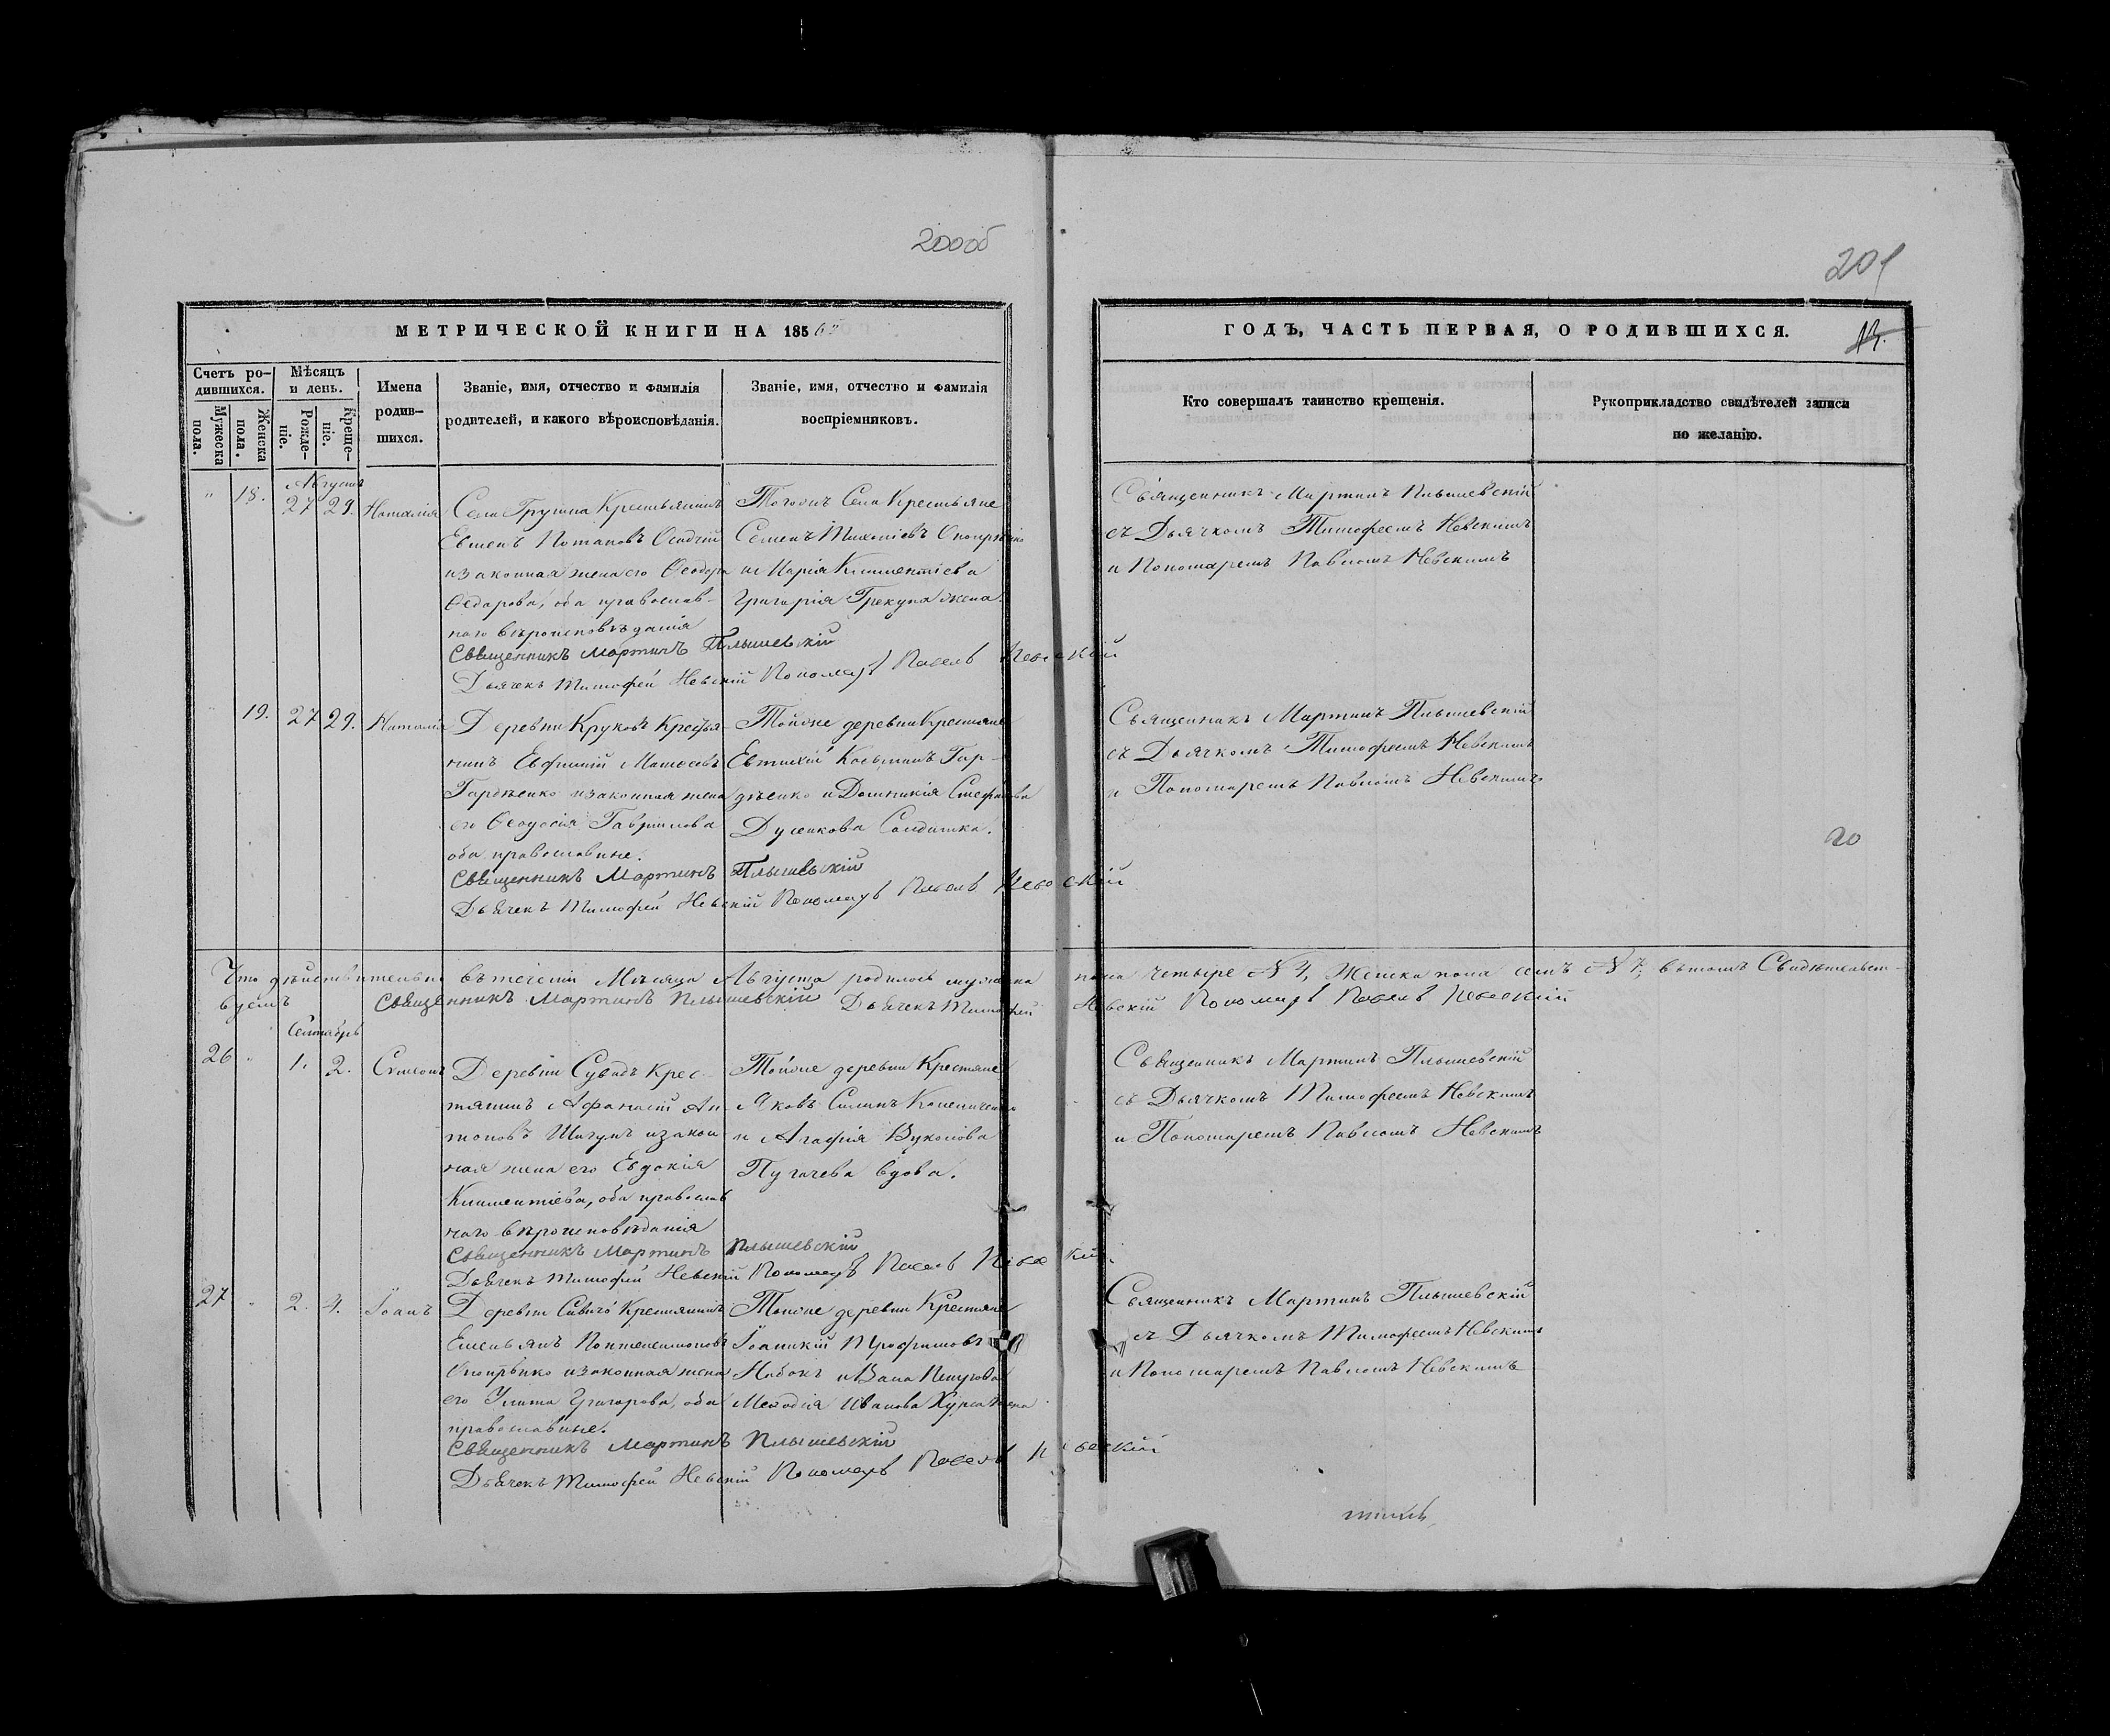 200об
201
МЕТРИЧЕСКОЙ КНИГИ НА 185 63
ГОДЪ, ЧАСТЬ ПЕРВАЯ, О РОДИВШИХСЯ.
13.
Счетъ ро-
дившихся.
Мѣсяцъ
и день.
Мужеска
пола.
Женска
пола.
Рожде-
ніе.
Креще-
ніе.
Имена
родив-
шихся.
Званіе, имя, отчество и фамилія
родителей, и какого вѣроисповѣданія.
Званіе, имя, отчество и фамилія
воспріемниковъ.
Кто совершалъ таинство крещенія.
Рукоприкладство свидѣтелей записи
по желанію.
Августъ
18. 27 29. Наталія
Села Крестьянинъ
Евменъ Потаповъ Осадчій
и законная жена его Ѳеодора
Ѳедорова, оба православ-
наго вѣроисповѣданія
Тогожъ Села Крестьяне
Семенъ
и Марія Климентіева
Григорія Грекуна жена.
Священникъ Мартинъ Плышевскій
съ Дьячкомъ Тимофеемъ Невскимъ
и Пономаремъ Павломъ Невскимъ
Священникъ Мартинъ Плышевскій
Дьячекъ Тимофей Невскій Пономарь Павелъ Невскій
19. 27 29. Наталія
Деревни Круковъ Крестья-
нинъ Евфимій Матѳеевъ
Гордѣенко и законная жена
его Ѳеодосія Гавріилова
оба православные.
Тойоже деревни Крестьяне
Евтихій Косьминъ Гор-
дѣенко и Домникія Стефанова
Солдатка.
Священникъ Мартинъ Плышевскій
съ Дьячкомъ Тимофеемъ Невскимъ
и Пономаремъ Павломъ Невскимъ
20
Священникъ Мартинъ Плышевскій
Дьячекъ Тимофей Невскій Пономарь Павелъ Невскій
Что дѣйствительно въ теченіи Мѣсяца Августа родилось мужеска пола четыре № 4, Женска пола семъ № 7, въ томъ Свидѣтельст-
вуемъ Священникъ Мартинъ Плышевскій Дьячекъ Тимофей Невскій Пономарь Павелъ Невскій
Сентябрь
26 1. 2. Симеонъ
Деревни Сувидъ Крес-
тянинъ Афанасій Ан-
тоновъ и закон-
ная жена его Евдокія
Климентіева, оба православ
наго вѣроисповѣданія
Тойоже деревни Крестяне
Яковъ
и Агафія Вуколова
Пугачева вдова.
Священникъ Мартинъ Плышевскій
съ Дьячкомъ Тимофеемъ Невскимъ
и Пономаремъ Павломъ Невскимъ
Священникъ Мартинъ Плышевскій
Дьячекъ Тимофей Невскій Пономарь Павелъ Невскій
27 2. 4. Іоанъ
Деревни Крестянинъ
Емельянъ
и законная жена
его Улита Григорова, оба
православные.
Тойоже деревни Крестяне
Іоаникій Трофимовъ
Набокъ
Иванова жена
Священникъ Мартинъ Плышевскій
съ Дьячкомъ Тимофеемъ Невскимъ
и Пономаремъ Павломъ Невскимъ
Священникъ Мартинъ Плышевскій
Дьячекъ Тимофей Невскій Пономарь Павелъ Невскій